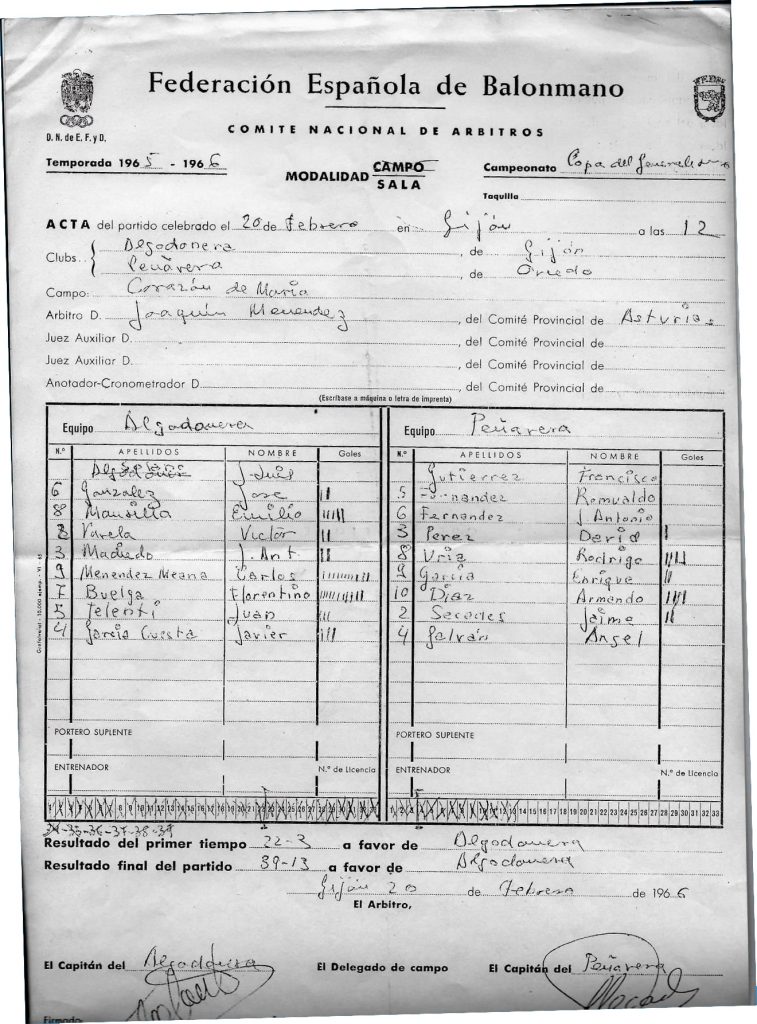 Federación Española de Balonmano
D. N. de E. F. y D.
COMITE NACIONAL DE ARBITROS
Temporada 1965 - 1966
MODALIDAD CAMPO
SALA
Campeonato Copa del Generalísimo
Taquilla
ACTA del partido celebrado el 20 de Febrero en Gijón a las 12
Clubs.. Algodonera, de Gijón
Peñavera, de Oviedo
Campo: Corazón de Maria
Arbitro D. Joaquín Menendez, del Comité Provincial de Asturias
Juez Auxiliar D., del Comité Provincial de
Juez Auxiliar D., del Comité Provincial de
Anotador-Cronometrador D., del Comité Provincial de
(Escríbase a máquina o letra de imprenta)
Equipo Algodonera
N.º APELLIDOS NOMBRE Goles
J. Luis
6 Gonzalez Jose II
8 Mansilla Emilio
2 Varela Victor II
3 Madiedo J. Ant. II
9 Menendez Meana Carlos
7 Buelga Florentino
5 Telenti Juan
4 Garcia Cuesta Javier III
PORTERO SUPLENTE
ENTRENADOR N.º de Licencia
Equipo Peñavera
N.º APELLIDOS NOMBRE Goles
Gutierrez Francisco
5 Fernandez Romualdo
6 Fernandez J Antonio
3 Perez David I
8 Uria Rodrigo IIII
9 Garcia Enrique II
10 Diaz Armando IIII
2 Secades Jaime II
4 Galván Angel
PORTERO SUPLENTE
ENTRENADOR N.º de Licencia
1 2 3 4 5 6 7 8 9 10 11 12 13 14 15 16 17 18 19 20 21 22 23 24 25 26 27 28 29 30 31 32 33
1 2 3 4 5 6 7 8 9 10 11 12 13 14 15 16 17 18 19 20 21 22 23 24 25 26 27 28 29 30 31 32 33
34-35-36-37-38-39
Resultado del primer tiempo 22-3 a favor de Algodonera
Resultado final del partido 39-13 a favor de Algodonera
Gijón 20 de Febrero de 1966
El Arbitro,
El Capitán del Algodonera
El Delegado de campo
El Capitán del Peñavera
Firmado: